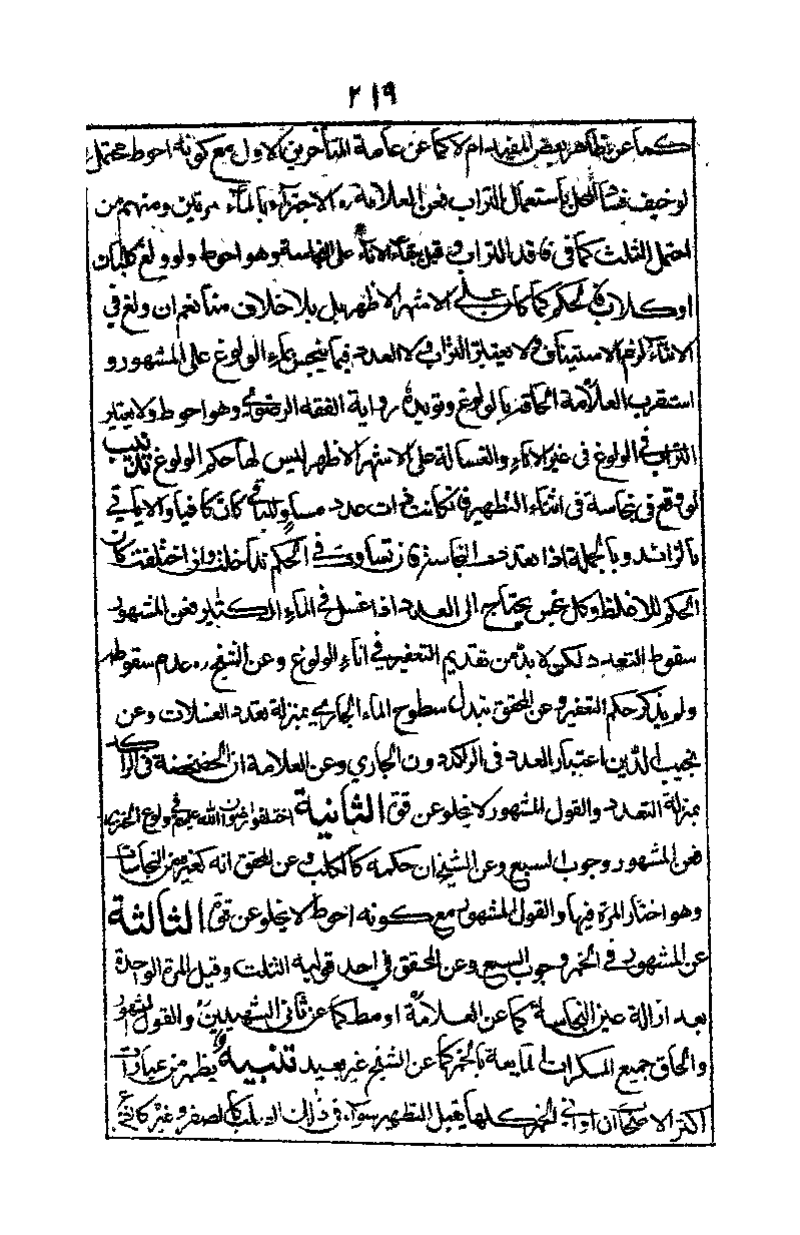 ٢١٩
كما عن ظاهر بعض المفيد ام لا كما عن عامة المتأخرين الاول مع كونه احوط محتمل
لو خيف فساد المحل باستعمال التراب فعن العلامة ره الاجتزاء بالماء مرتين ومنهم من
احتمل الثلث كما في فاقد التراب وقيل ببقاء الاناء على النجاسة وهو احوط ولو ولغ كلبان
او كلاب فالحكم كما كان على الاشهر الاظهر بل بلا خلاف منا نعم ان ولغ في
الاثناء لزم الاستيناف ولا يعتبر التراب ولا العدد فيما ينجس بماء الولوغ على المشهور و
استقرب العلامة الحاقه بالولوغ وتؤيده رواية الفقه الرضوي وهو احوط ولا يعتبر
التراب في الولوغ في غير الاناء والغسالة على الاشهر الاظهر ليس لها حكم الولوغ تذنيب
لو وقع في نجاسة في اثناء التطهير فان كانت ذات عدد مساو للباقي كان كافيا والا ياتي
بالزائد وبالجملة اذا تعددت النجاسة فان تساوت في الحكم تداخلت وان اختلفت كان
الحكم للاغلظ وكل نجس يحتاج الى العدد اذا غسل في الماء الكثير فعن المشهور
سقوط التعدد لكن لا بد من تقديم التعفير في اناء الولوغ وعن الشيخ ره عدم سقوطه
ولم يذكر حكم التعفير وعن المحقق تبدل سطوح الماء الجاري بمنزلة تعدد الغسلات وعن
نجيب الدين اعتبار العدد في الراكد دون الجاري وعن العلامة ان الخضخضة في الراكد
بمنزلة التعدد والقول المشهور لا يخلو عن قوة الثانية اختلفوا رضوان الله عليهم في ولوغ الخنزير
فعن المشهور وجوب السبع وعن الشيخ ان حكمه كالكلب وعن المحقق انه كغيره من النجاسات
وهو اختار المرة فيها والقول المشهور مع كونه احوط لا يخلو عن قوة الثالثة
عن المشهور في الخمر وجوب السبع وعن المحقق في احد قوليه الثلث وقيل المرة الواحدة
بعد ازالة عين النجاسة كما عن العلامة او مط كما عن ثاني الشهيدين والقول المشهور
والحاق جميع المسكرات المايعة بالخمر كما عن الشيخ غير بعيد تنبيه يظهر من عبارات
اكثر الاصحاب ان اواني الخمر كلها يقبل التطهير سواء في ذلك الصلب كالصفر وغيره كالخزف